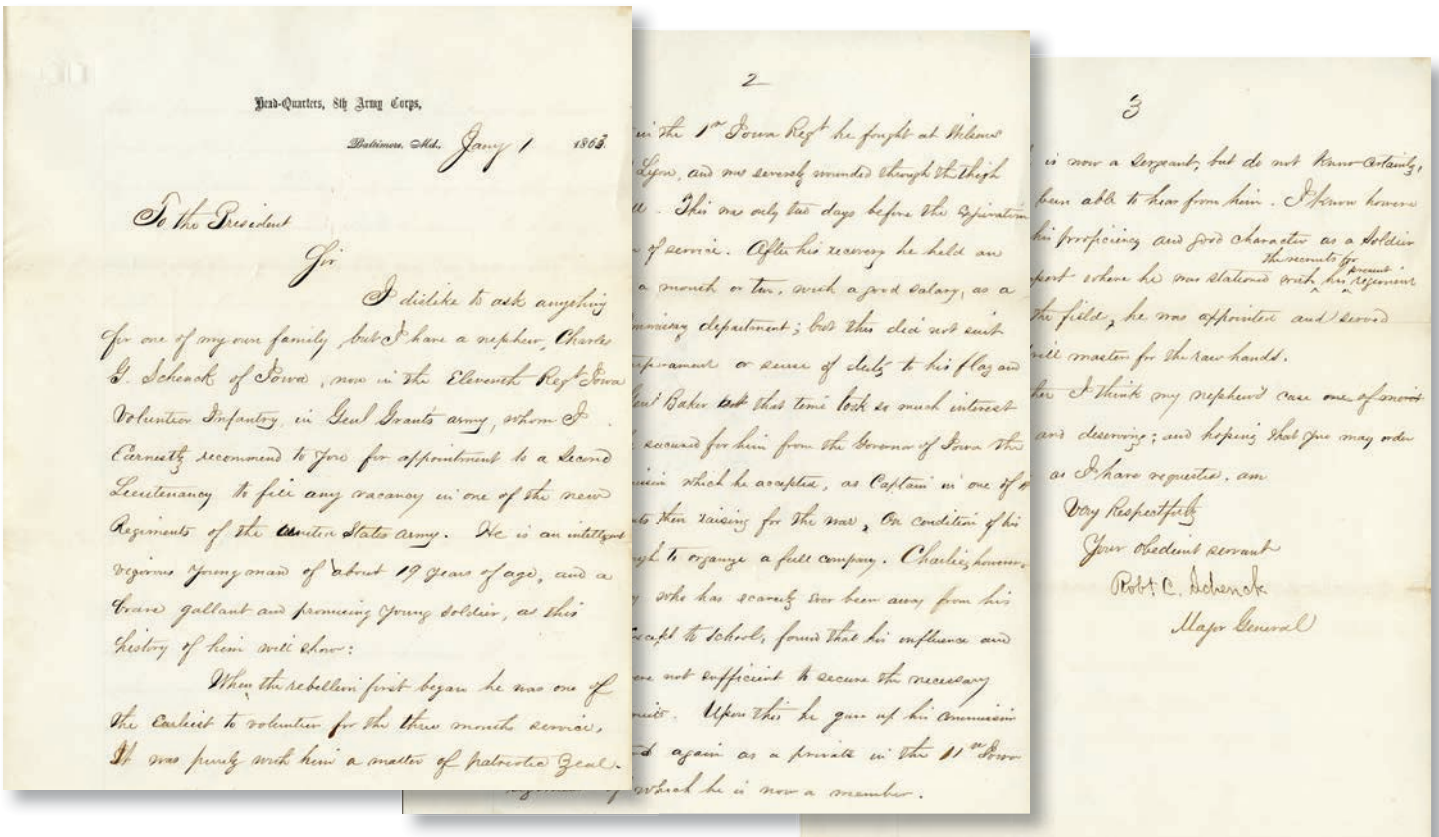 Head-Quarters, 8th Army Corps,
Baltimore, Md., Jany 1 1863.
To the President
Sir
I dislike to ask anything
for one of my own family, but I have a nephew, Charles
G. Schenck of Iowa, now in the Eleventh Regt Iowa
Volunteer Infantry, in Genl Grants army, whom I
Earnestly recommend to you for appointment to a Second
Lieutenancy to fill any vacancy in one of the new
Regiments of the United States army. He is an intelligent
vigorous young man of about 19 years of age, and a
brave gallant and promising young soldier, as this
history of him will show:
When the rebellion first began he was one of
the earliest to volunteer for the three months service.
It was purely with him a matter of patriotic zeal.
2
in the 1st Iowa Regt he fought at Wilsons
Lyon, and was severely wounded through the thigh
This was only two days before the expiration
of service. After his recovery he held an
a month or two, with a good salary, as a
department; but this did not suit
or sense of duty to his flag and
Genl Baker at that time took so much interest
secured for him from the Governor of Iowa the
which he accepted, as Captain in one of
then raising for the war, On condition of his
to organize a full company. Charlie, however,
who has scarcely ever been away from his
except to school, found that his influence and
not sufficient to secure the necessary
Upon this he gave up his commission
again as a private in the 11th Iowa
of which he is now a member.
3
is now a sergeant, but do not know certainly,
been able to hear from him. I know however
his proficiency and good character as a Soldier
where he was stationed with the recruits for his present regiment
the field, he was appointed and served
drill master for the raw hands.
I think my nephew's case one of merit
and deserving; and hoping that you may order
as I have requested, am
Very Respectfully
Your obedient servant
Robt. C. Schenck
Major General